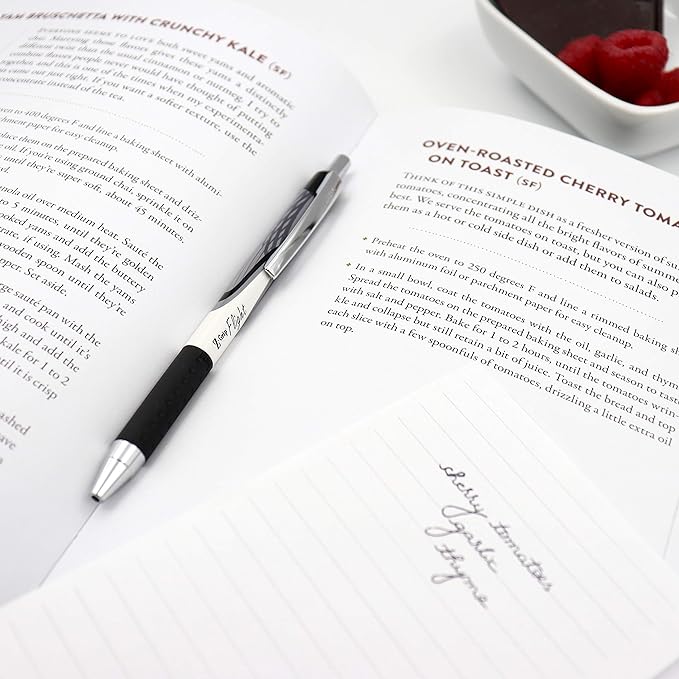 AM BRUSCHETTA WITH CRUNCHY KALE (SF)
EVERYONE SEEMS TO LOVE both sweet yams and aromatic
chai. Marrying those flavors gives these yams a distinctly
different twist than the usual cinnamon or nutmeg. I try to
combine flavors people never would have thought of putting
together, and this is one of the times when my experimenta-
on came out just right. If you want a softer texture, use the
concentrate instead of the tea.
en to 400 degrees F and line a baking sheet with alumi-
chment paper for easy cleanup.
lace them on the prepared baking sheet and driz-
oil. If you're using ground chai, sprinkle it on
ntil they're super soft, about 45 minutes.
nola oil over medium heat. Sauté the
to 5 minutes, until they're golden
ooked yams and add the buttery
rate, if using. Mash the yams
ooden spoon until they're
pper. Set aside.
rge sauté pan with the
and cook until it's
high and add the
kale for 1 to 2
ntil it is crisp
ashed
ave
Z Grip Flight
OVEN-ROASTED CHERRY TOMA
ON TOAST (SF)
THINK OF THIS SIMPLE DISH as a fresher version of su
tomatoes, concentrating all the bright flavors of summe
best. We serve the tomatoes on toast, but you can also p
them as a hot or cold side dish or add them to salads.
Preheat the oven to 250 degrees F and line a rimmed baking
with aluminum foil or parchment paper for easy cleanup.
In a small bowl, coat the tomatoes with the oil, garlic, and thym
Spread the tomatoes on the prepared baking sheet and season to taste
with salt and pepper. Bake for 1 to 2 hours, until the tomatoes wrin-
kle and collapse but still retain a bit of juice. Toast the bread and top
each slice with a few spoonfuls of tomatoes, drizzling a little extra oil
on top.
cherry tomatoes
garlic
thyme